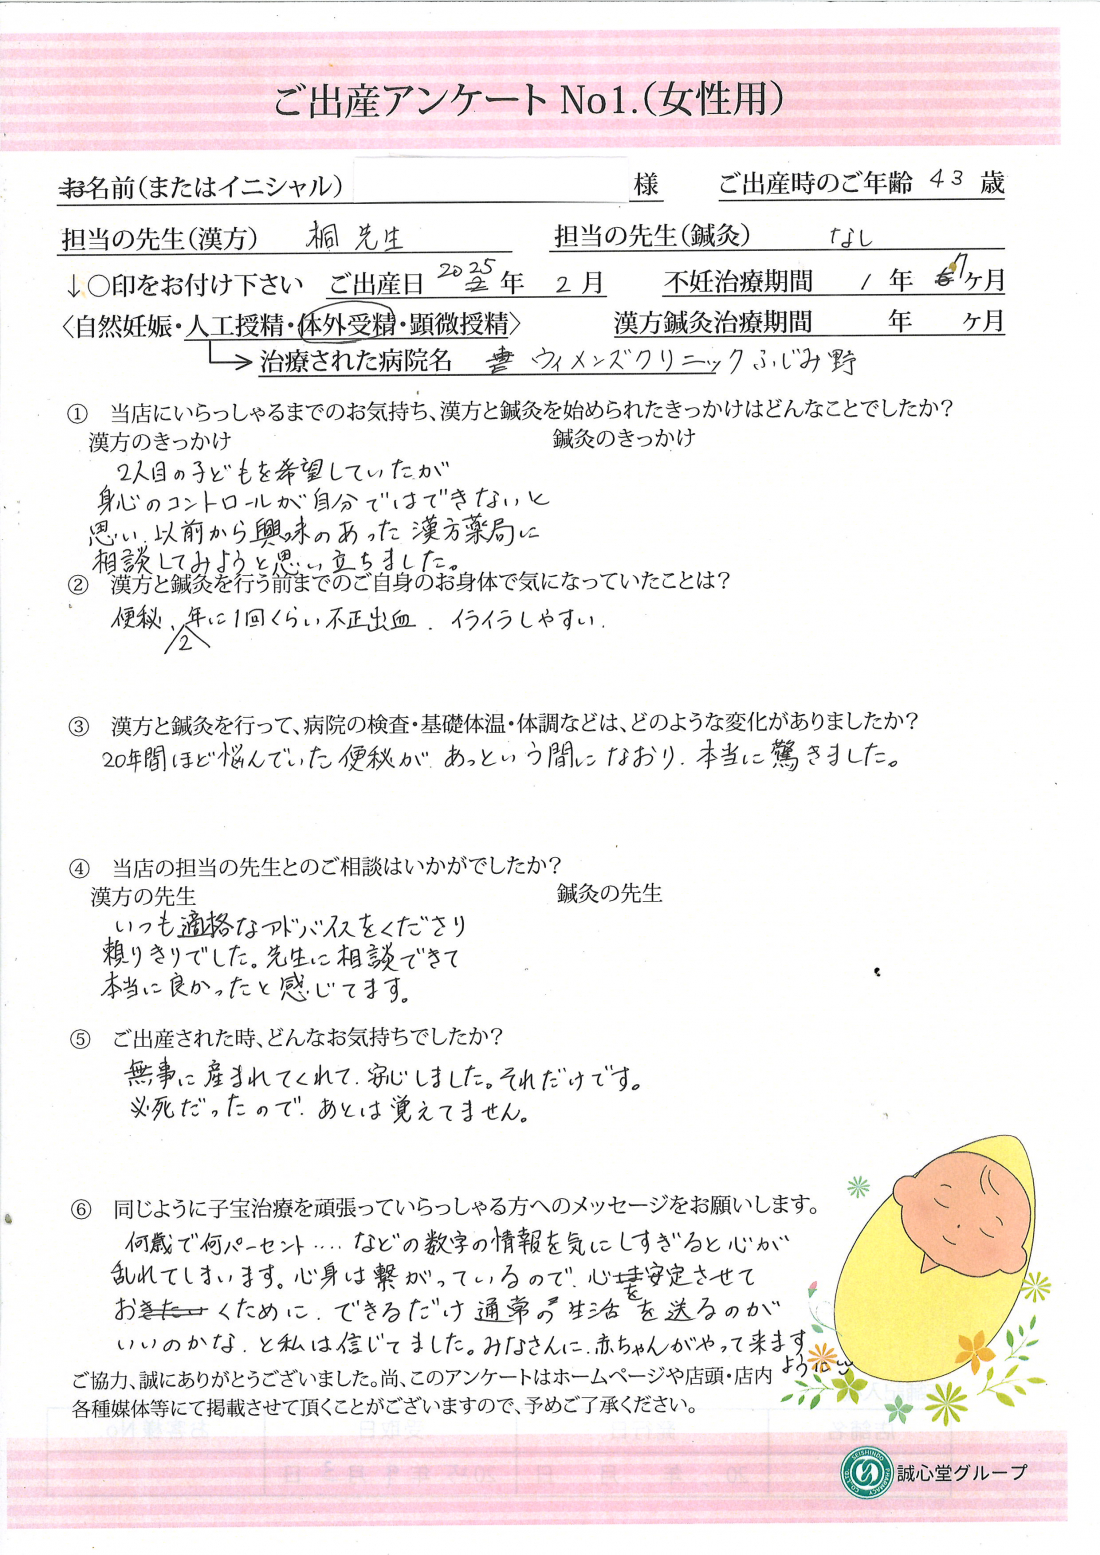 ご出産アンケート No1.(女性用)
お名前(またはイニシャル) 様 ご出産時のご年齢 43 歳
担当の先生(漢方) 桐先生 担当の先生(鍼灸) なし
↓○印をお付け下さい ご出産日 2025年 2月 不妊治療期間 1年 7ヶ月
〈自然妊娠・人工授精・体外受精・顕微授精〉 漢方鍼灸治療期間 年 ヶ月
治療された病院名 ウィメンズクリニックふじみ野
① 当店にいらっしゃるまでのお気持ち、漢方と鍼灸を始められたきっかけはどんなことでしたか?
漢方のきっかけ 鍼灸のきっかけ
2人目の子どもを希望していたが
身心のコントロールが自分ではできないと
思い、以前から興味のあった漢方薬局に
相談してみようと思い立ちました。
② 漢方と鍼灸を行う前までのご自身のお身体で気になっていたことは?
便秘、2年に1回くらい不正出血、イライラしやすい.
③ 漢方と鍼灸を行って、病院の検査・基礎体温・体調などは、どのような変化がありましたか?
20年間ほど悩んでいた便秘が、あっという間になおり、本当に驚きました。
④ 当店の担当の先生とのご相談はいかがでしたか?
漢方の先生 鍼灸の先生
いつも適格なアドバイスをくださり
頼りきりでした。先生に相談できて
本当に良かったと感じてます。
⑤ ご出産された時、どんなお気持ちでしたか?
無事に産まれてくれて、安心しました。それだけです。
必死だったので、あとは覚えてません。
⑥ 同じように子宝治療を頑張っていらっしゃる方へのメッセージをお願いします。
何歳で何パーセント‥‥などの数字の情報を気にしすぎると心が
乱れてしまいます。心身は繋がっているので、心を安定させて
おくために、できるだけ通常の生活を送るのが
いいのかな、と私は信じてました。みなさんに、赤ちゃんがやって来ます
ように
ご協力、誠にありがとうございました。尚、このアンケートはホームページや店頭・店内
各種媒体等にて掲載させて頂くことがございますので、予めご了承ください。
誠心堂グループ